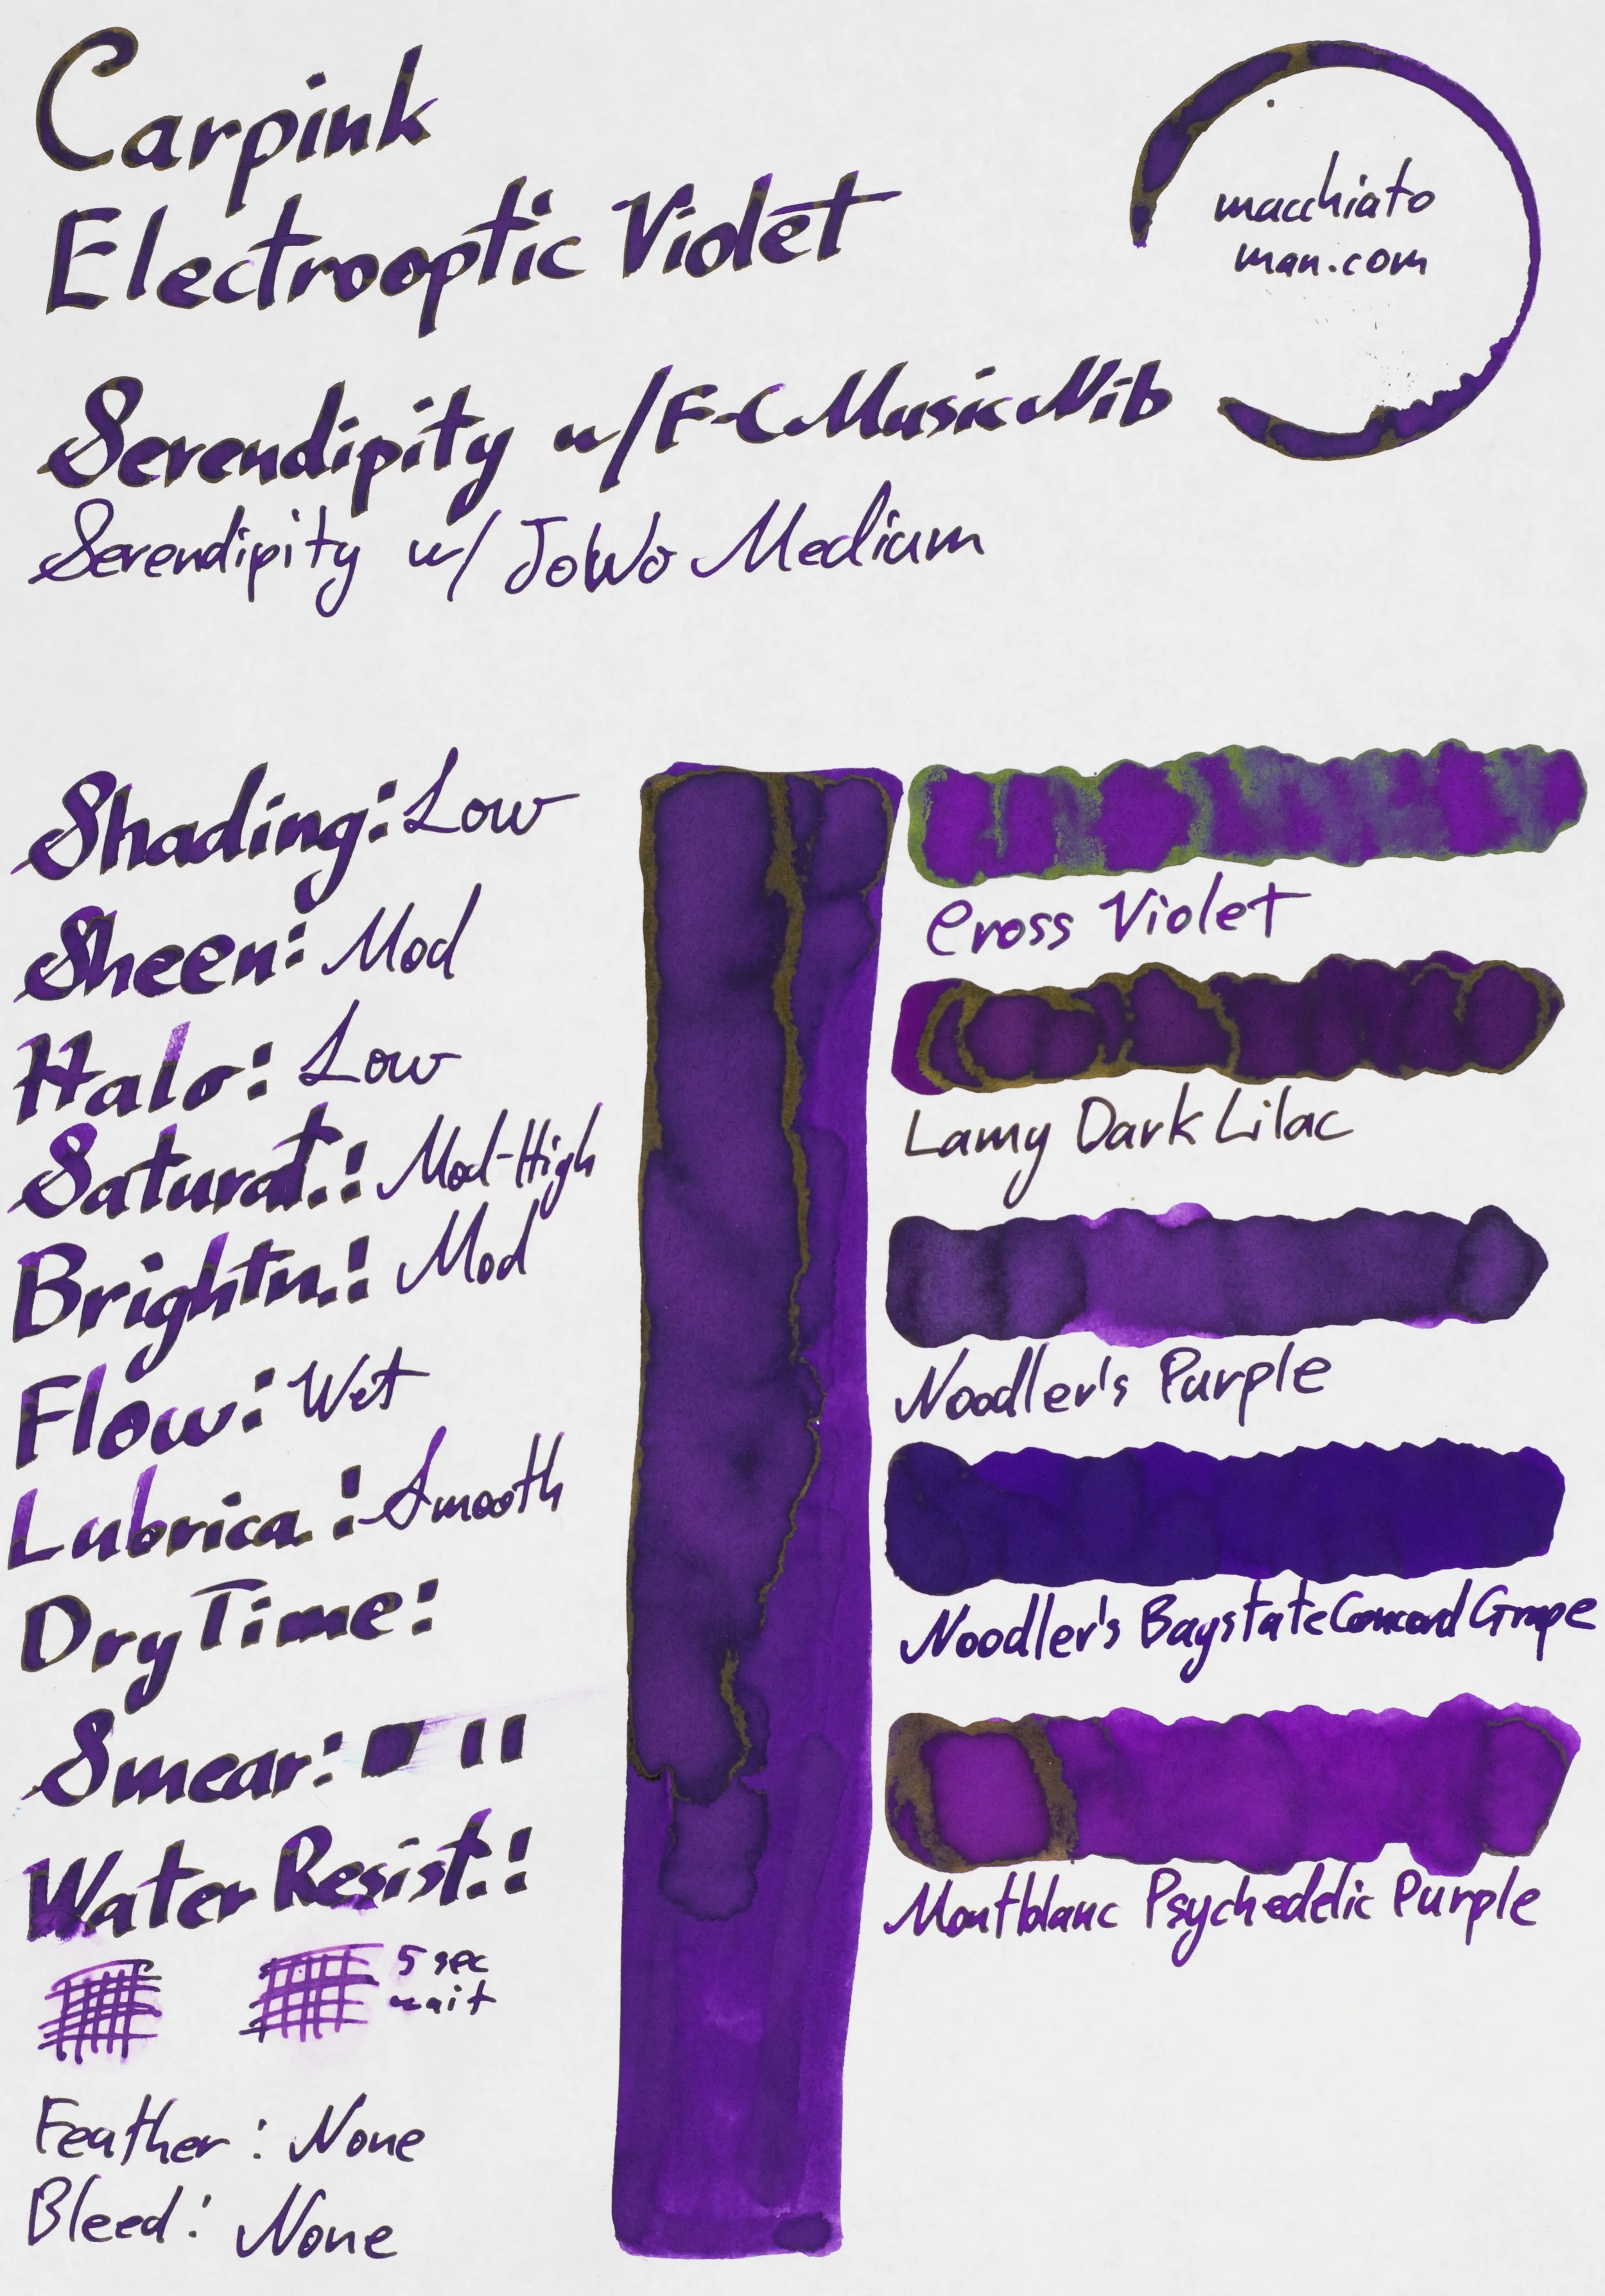 Carpink
Electrooptic Violet
macchiato
man.com
Serendipity w/F-C Music Nib
Serendipity w/ JoWo Medium
Shading: Low
Sheen: Mod
Halo: Low
Saturat.: Mod-High
Brightn.: Mod
Flow: Wet
Lubrica.: Smooth
Dry Time:
Smear:
Water Resist.:
5 sec
wait
Feather: None
Bleed: None
Cross Violet
Lamy Dark Lilac
Noodler's Purple
Noodler's Baystate Concord Grape
Montblanc Psychedelic Purple